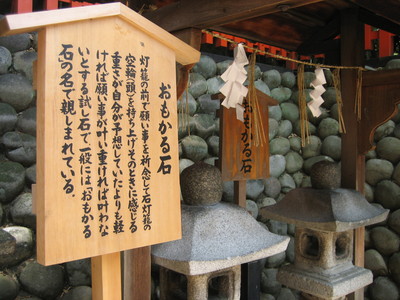 おもかる石
灯籠の前で願い事を祈念して石灯籠の
空輪(頭)を持ち上げ、そのときに感じる
重さが、自分が予想していたよりも軽
ければ願い事が叶い、重ければ叶わな
いとする試し石で、一般には〝おもかる
石〟の名で親しまれている。
おもかる石